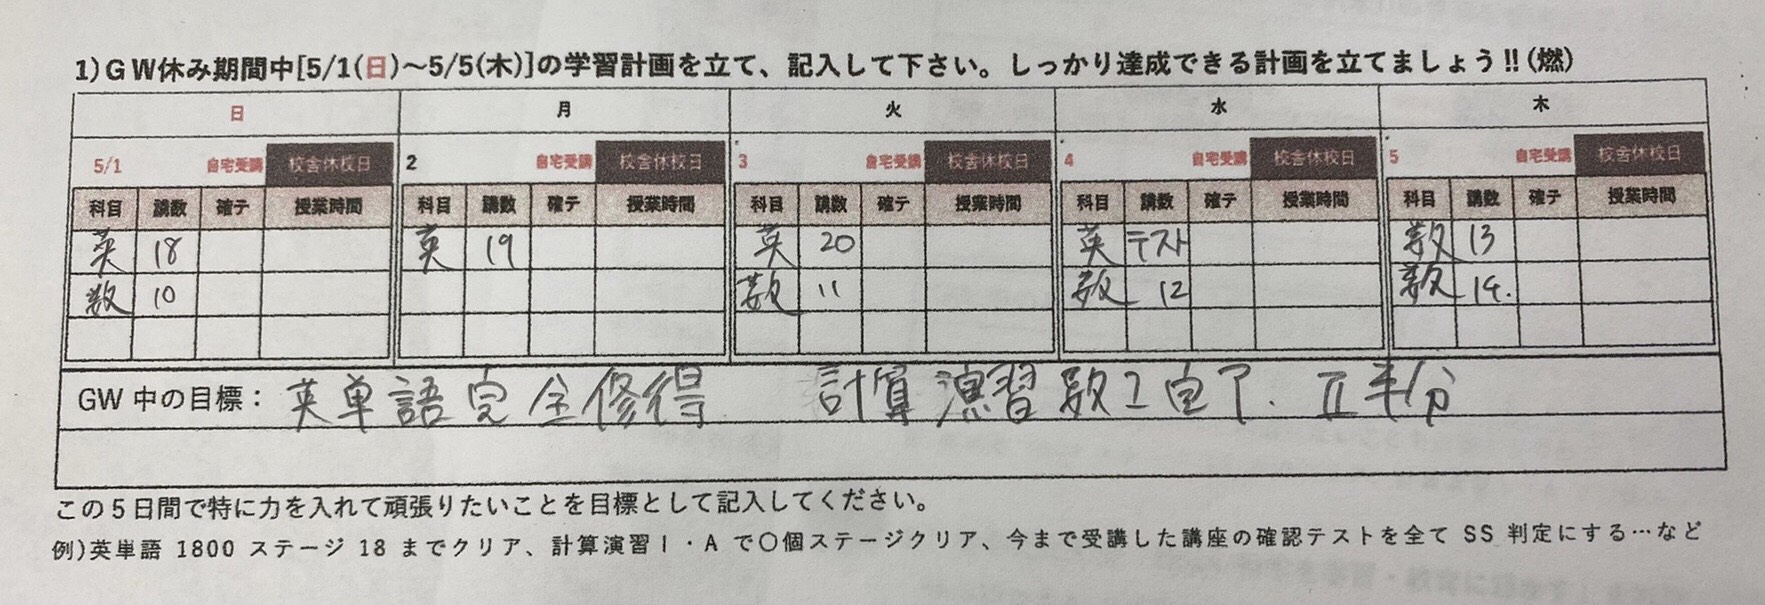 1)GW休み期間中[5/1(日)～5/5(木)]の学習計画を立て、記入して下さい。しっかり達成できる計画を立てましょう!!(燃)
日 月 火 水 木
5/1 自宅受講 校舎休校日 2 自宅受講 校舎休校日 3 自宅受講 校舎休校日 4 自宅受講 校舎休校日 5 自宅受講 校舎休校日
科目 講数 確テ 授業時間 科目 講数 確テ 授業時間 科目 講数 確テ 授業時間 科目 講数 確テ 授業時間 科目 講数 確テ 授業時間
英 18 英 19 英 20 英 テスト 数 13
数 10 数 11 数 12 数 14.
GW中の目標： 英単語完全修得 計算演習数I完了. II半分
この5日間で特に力を入れて頑張りたいことを目標として記入してください。
例)英単語 1800 ステージ 18 までクリア、計算演習I・Aで〇個ステージクリア、今まで受講した講座の確認テストを全て SS 判定にする…など